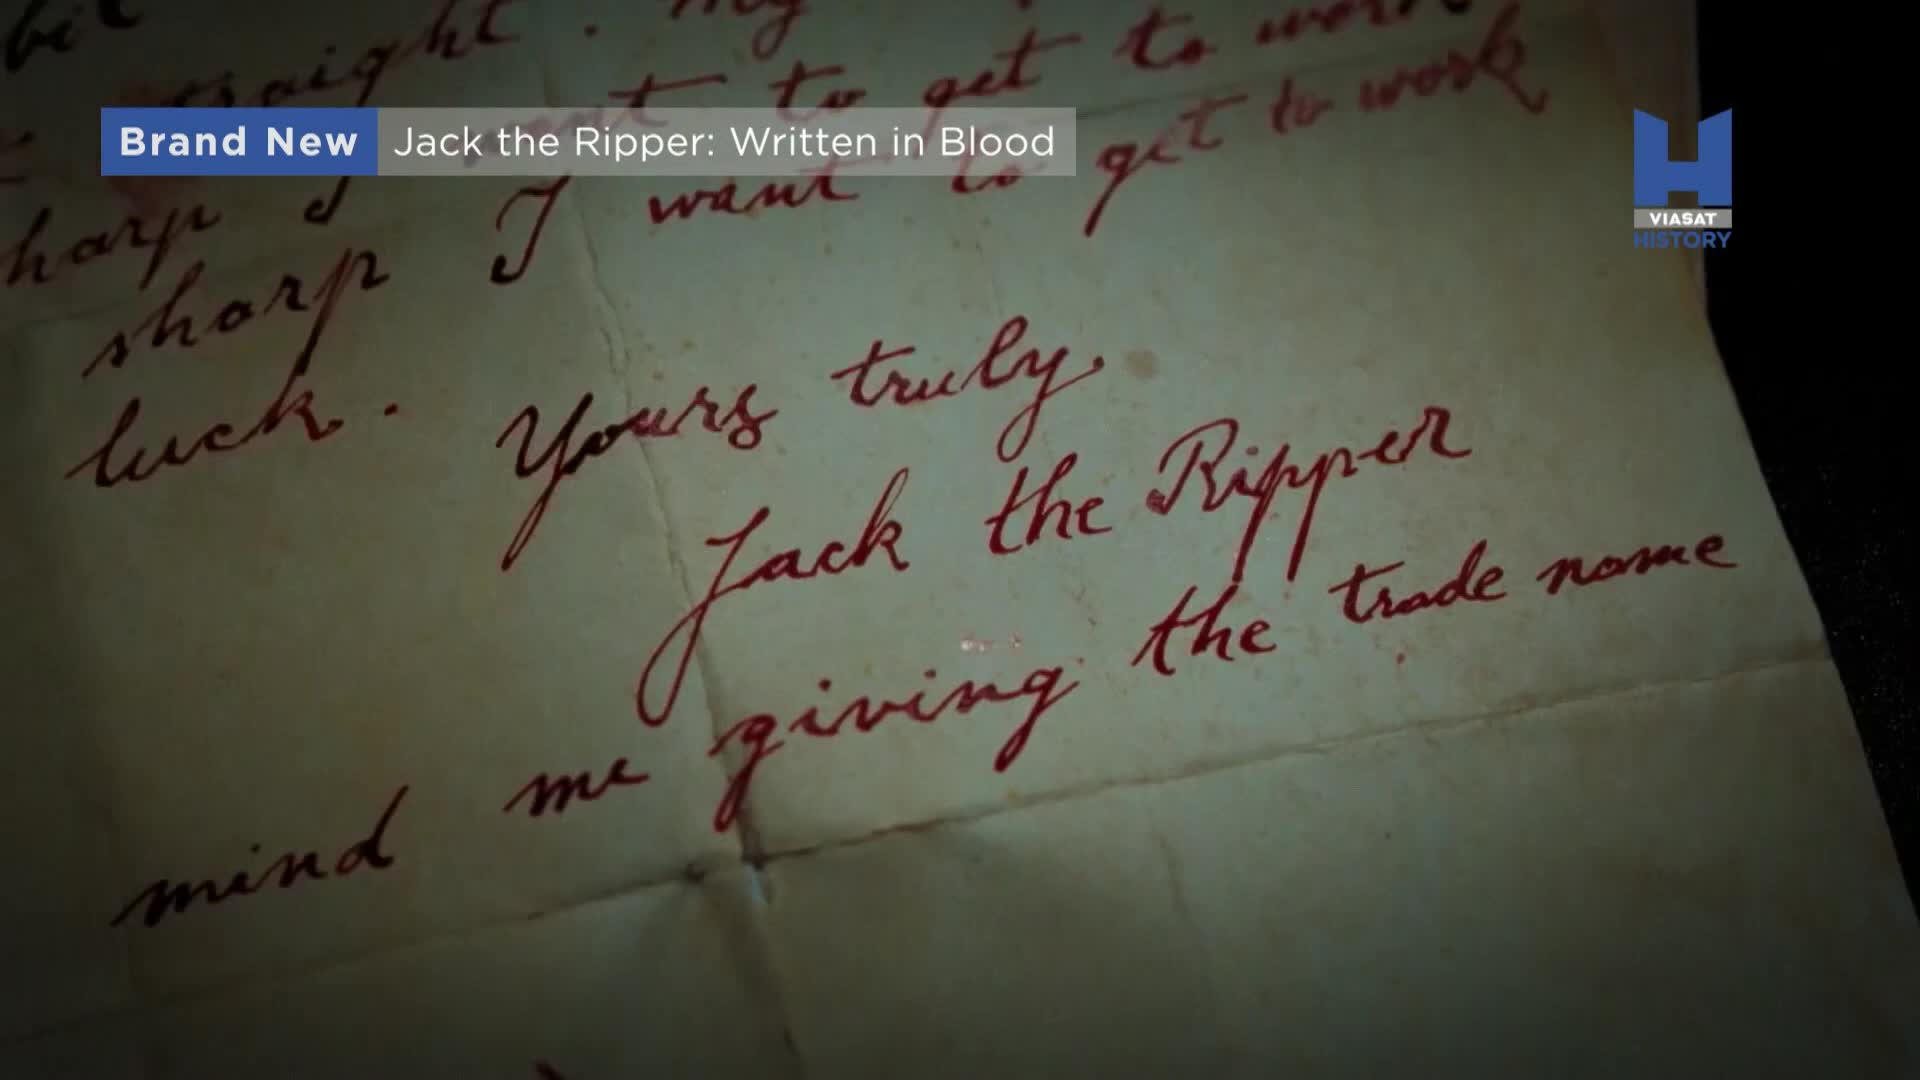 bit
straight. My
want to get to work
Brand New Jack the Ripper: Written in Blood
VIASAT
HISTORY
harp I
sharp I want to get to work
luck. Yours truly.
Jack the Ripper
mind me giving the trade name